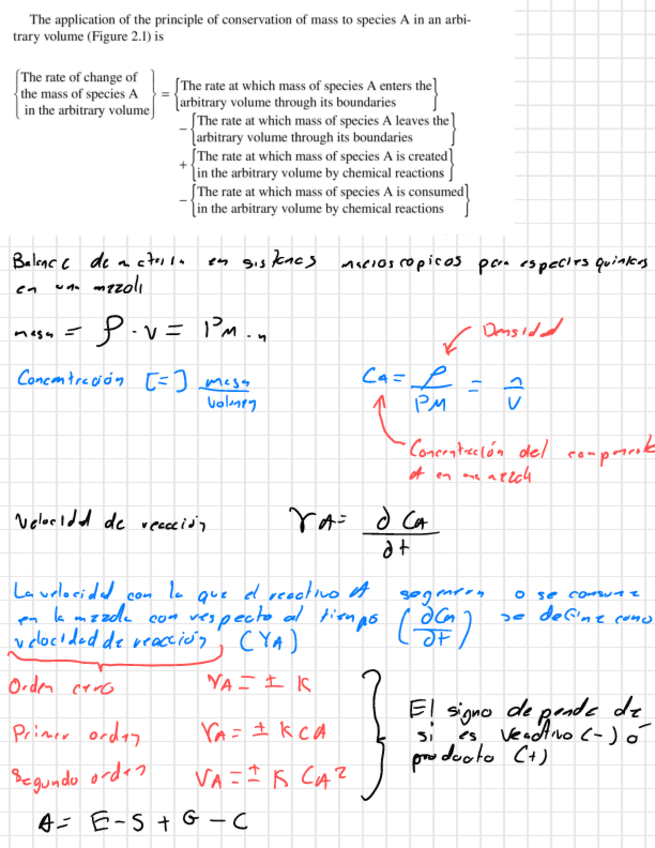 The application of the principle of conservation of mass to species A in an arbi-
trary volume (Figure 2.1) is
{The rate of change of
the mass of species A
in the arbitrary volume} = {The rate at which mass of species A enters the
arbitrary volume through its boundaries}
− {The rate at which mass of species A leaves the
arbitrary volume through its boundaries}
+ {The rate at which mass of species A is created
in the arbitrary volume by chemical reactions}
− {The rate at which mass of species A is consumed
in the arbitrary volume by chemical reactions}
Balance de materia en sistemas macroscopicos para especies quimicas
en una mezcla
masa = ρ · v = PM · n
Densidad
Concentración [=] masa / volumen
CA = ρ / PM = n / V
Concentración del componente
A en una mezcla
Velocidad de reacción rA = ∂CA / ∂t
La velocidad con la que el reactivo A se genera o se consume
en la mezcla con respecto al tiempo (∂CA / ∂t) se define como
velocidad de reacción, (rA)
Orden cero rA = ± K
Primer orden rA = ± K CA
Segundo orden rA = ± K CA²
El signo depende de
si es reactivo (-) ó
producto (+)
A = E - S + G - C